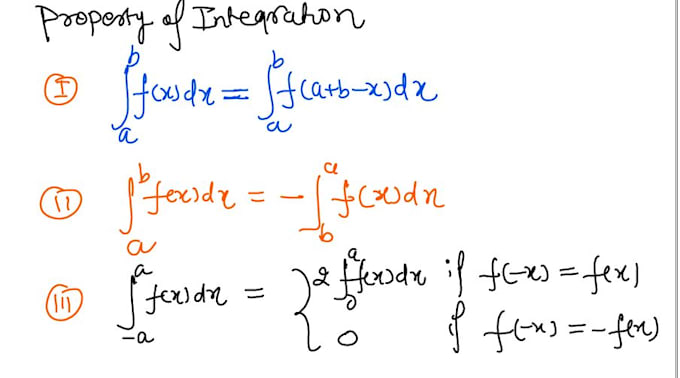 Property of Integration
(I) ∫_a^b f(x)dx = ∫_a^b f(a+b-x)dx
(II) ∫_a^b f(x)dx = -∫_b^a f(x)dx
(III) ∫_{-a}^a f(x)dx = { 2∫_0^a f(x)dx if f(-x) = f(x)
0 if f(-x) = -f(x)